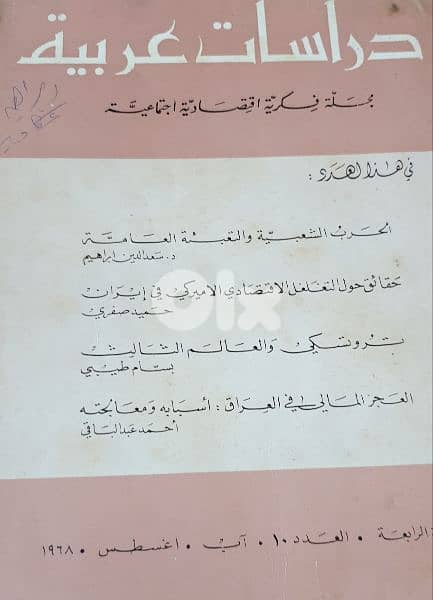 دراسات عربية
مجلة فكرية اقتصادية اجتماعية
في هذا العدد :
الحرب الشعبية والتعبئة العامة
د. سعد الدين ابراهيم
حقائق حول التغلغل الاقتصادي الاميركي في إيران
حميد صفري
تروتسكي والعالم الثالث
بسام طيبي
العجز المالي في العراق : أسبابه ومعالجته
أحمد عبد الباقي
الرابعة • العدد ١٠ • آب • اغسطس • ١٩٦٨
olx